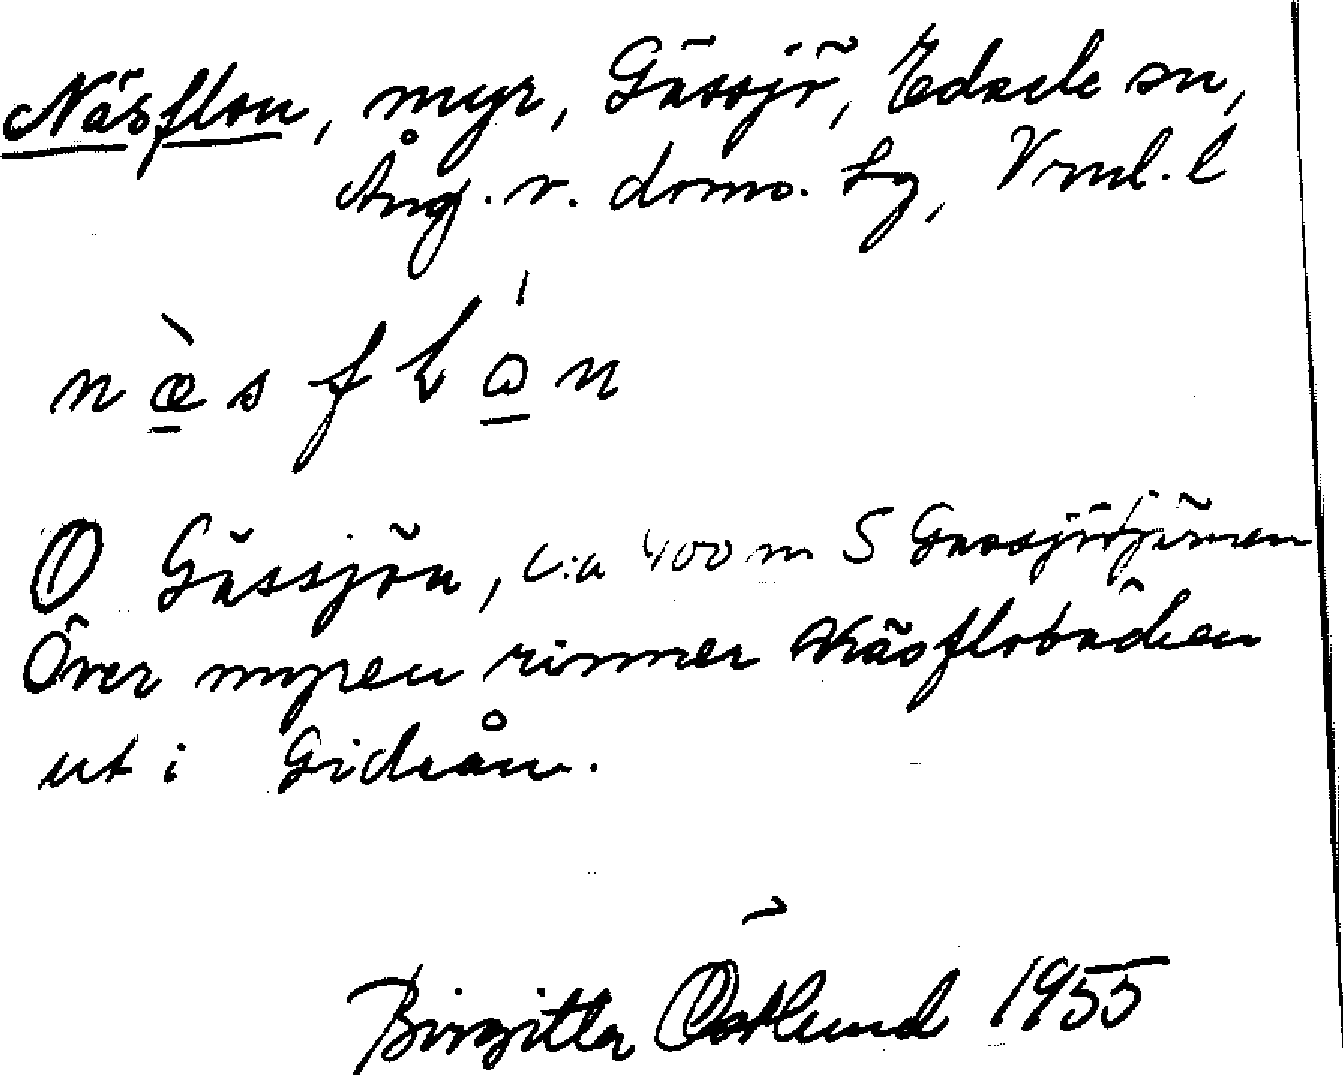 Näsflon, myr, Gässjö, Edsele sn,
Ång. v. doms. tg, Vrnl. l
næ̀sflǻn
O Gässjön, c:a 400 m S Gässjötjärnen
Över myren rinner Näsflobäcken
ut i Gideån.
Birgitta Östlund 1955